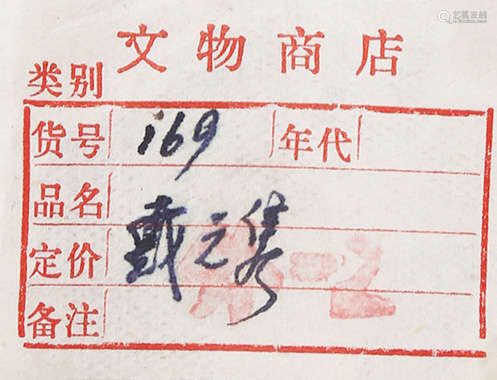 文物商店
类别
货号 169 年代
品名 戴元隽
定价
备注